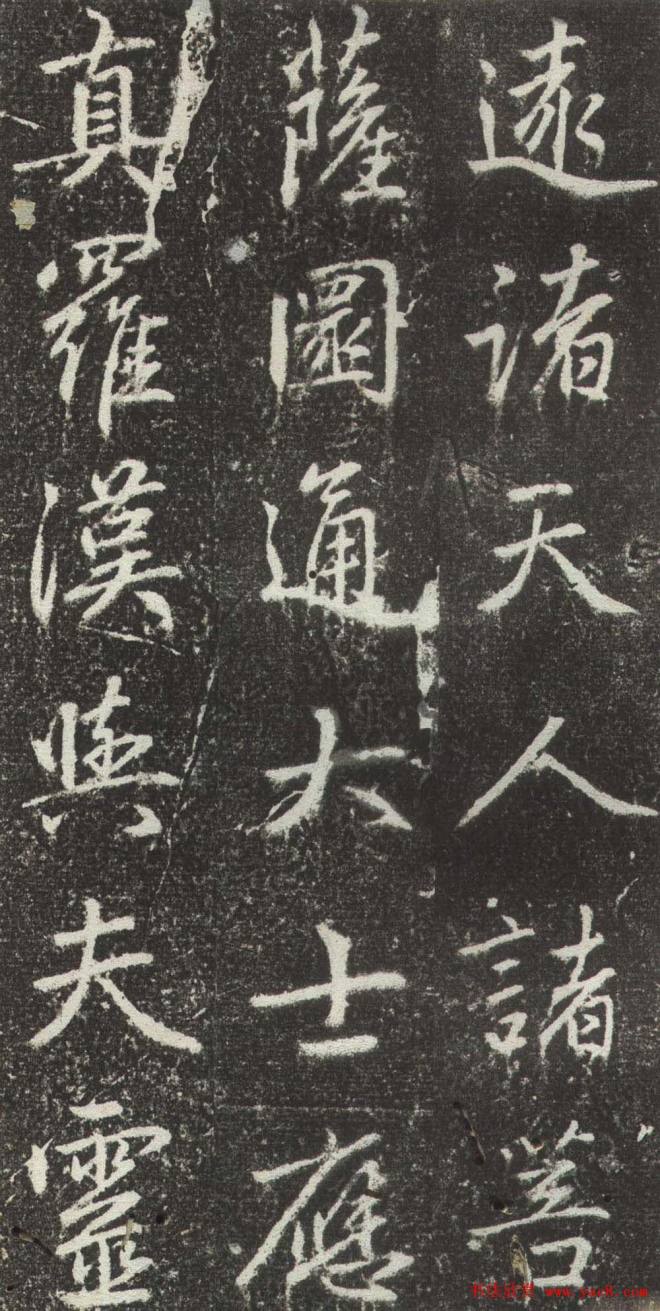 逮諸天人諸菩
薩圓通大士應
真羅漢與夫靈
书法欣赏 www.yac8.com